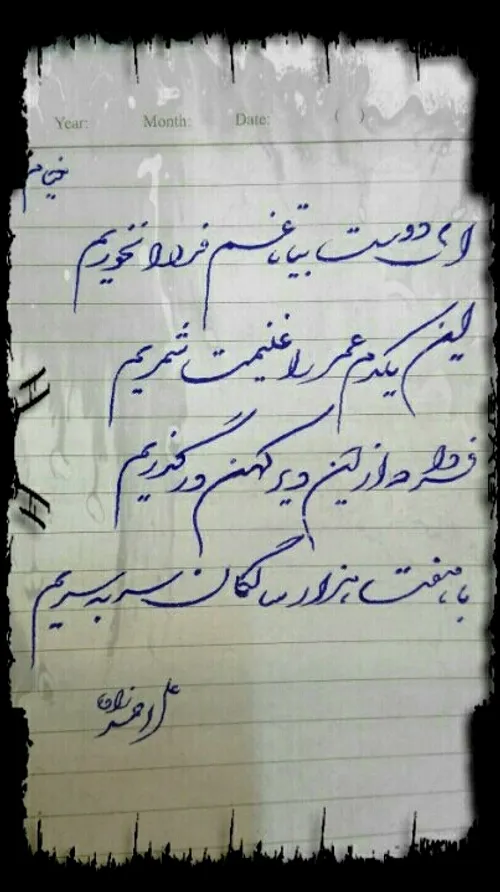 Year: Month: Date: ( )
خیام
ای دوست بیا تا غم فردا نخوریم
این یکدم عمر را غنیمت شمریم
فردا که ازین دیر کهن درگذریم
با هفت هزار سالگان سر به سریم